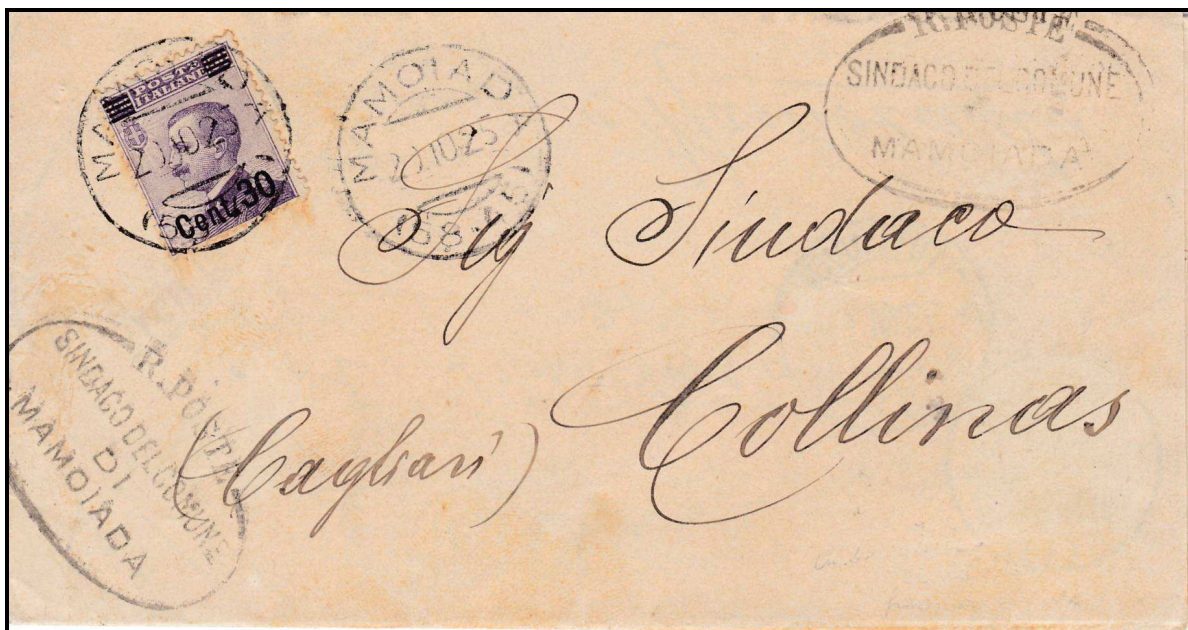 POSTE
ITALIANE
Cent. 30
MAMOIADA
20.10.25
MAMOIADA
20.10.25
R. POSTE
SINDACO DEL COMUNE
MAMOIADA
Sig Sindaco
Collinas
(Cagliari)
R. POSTE
SINDACO DEL COMUNE
DI
MAMOIADA